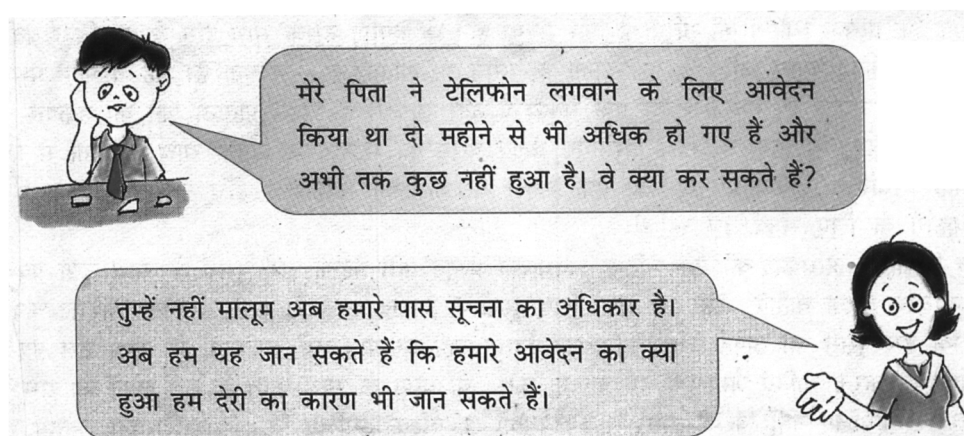 मेरे पिता ने टेलिफोन लगवाने के लिए आवेदन
किया था दो महीने से भी अधिक हो गए हैं और
अभी तक कुछ नहीं हुआ है। वे क्या कर सकते हैं?
तुम्हें नहीं मालूम अब हमारे पास सूचना का अधिकार है।
अब हम यह जान सकते हैं कि हमारे आवेदन का क्या
हुआ हम देरी का कारण भी जान सकते हैं।